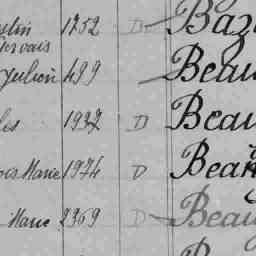 1752 D Baz
Gervais
Julien 499 Beau
1937 D Beau
Marie 1974 D Beau
Marie 2369 D Beau